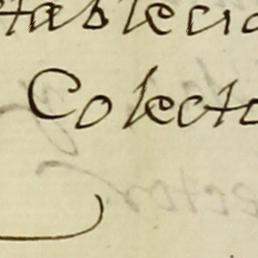 tablecid
Colecto